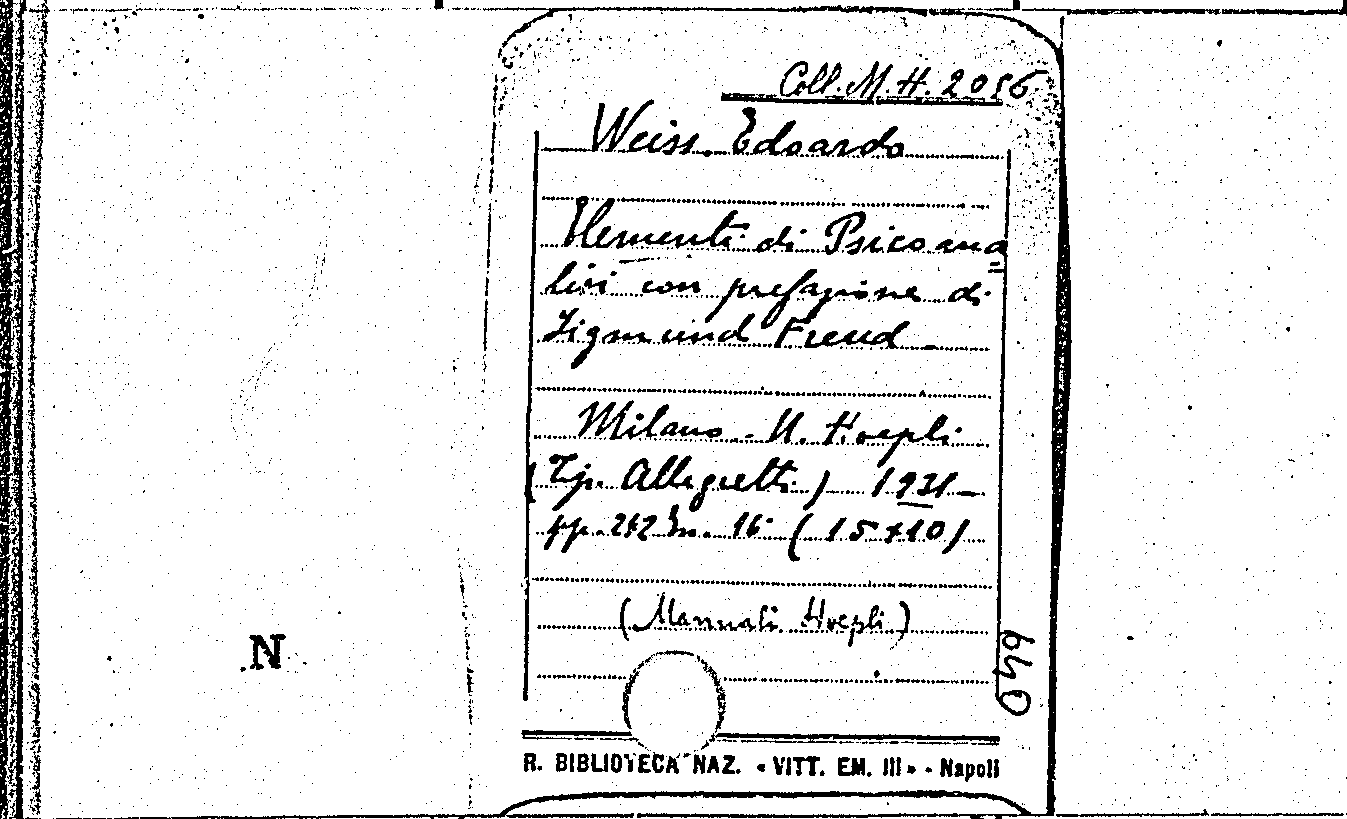 Coll. M. H. 2056
Weiss. Edoardo
Elementi di Psicoana
lisi con prefazione di
Sigmund Freud
Milano - U. Hoepli
(Tip. Allegretti) 1931 -
pp. 242 In. 16° (15×10)
(Manuali Hoepli)
640
N
R. BIBLIOTECA NAZ. « VITT. EM. III » - Napoli